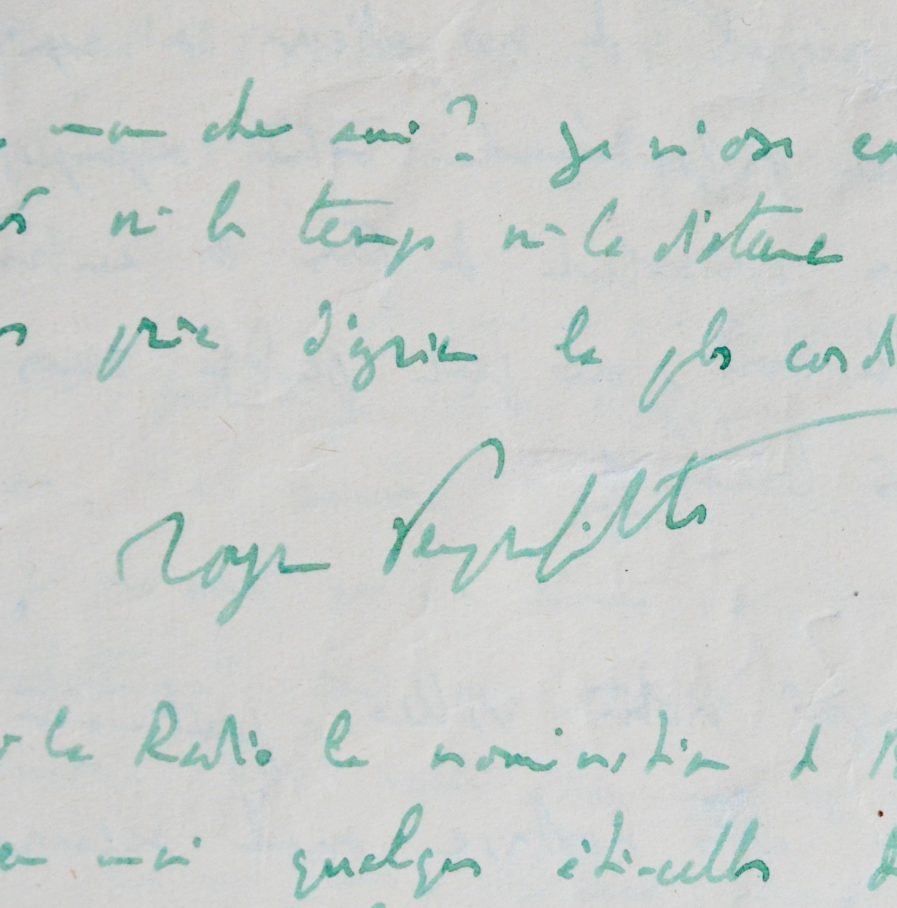 mon cher ami ? Je n'ose
ni le temps ni la distance
prie d'agréer le plus
Roger Peyrefitte
la Radio la nomination de
moi quelques étincelles